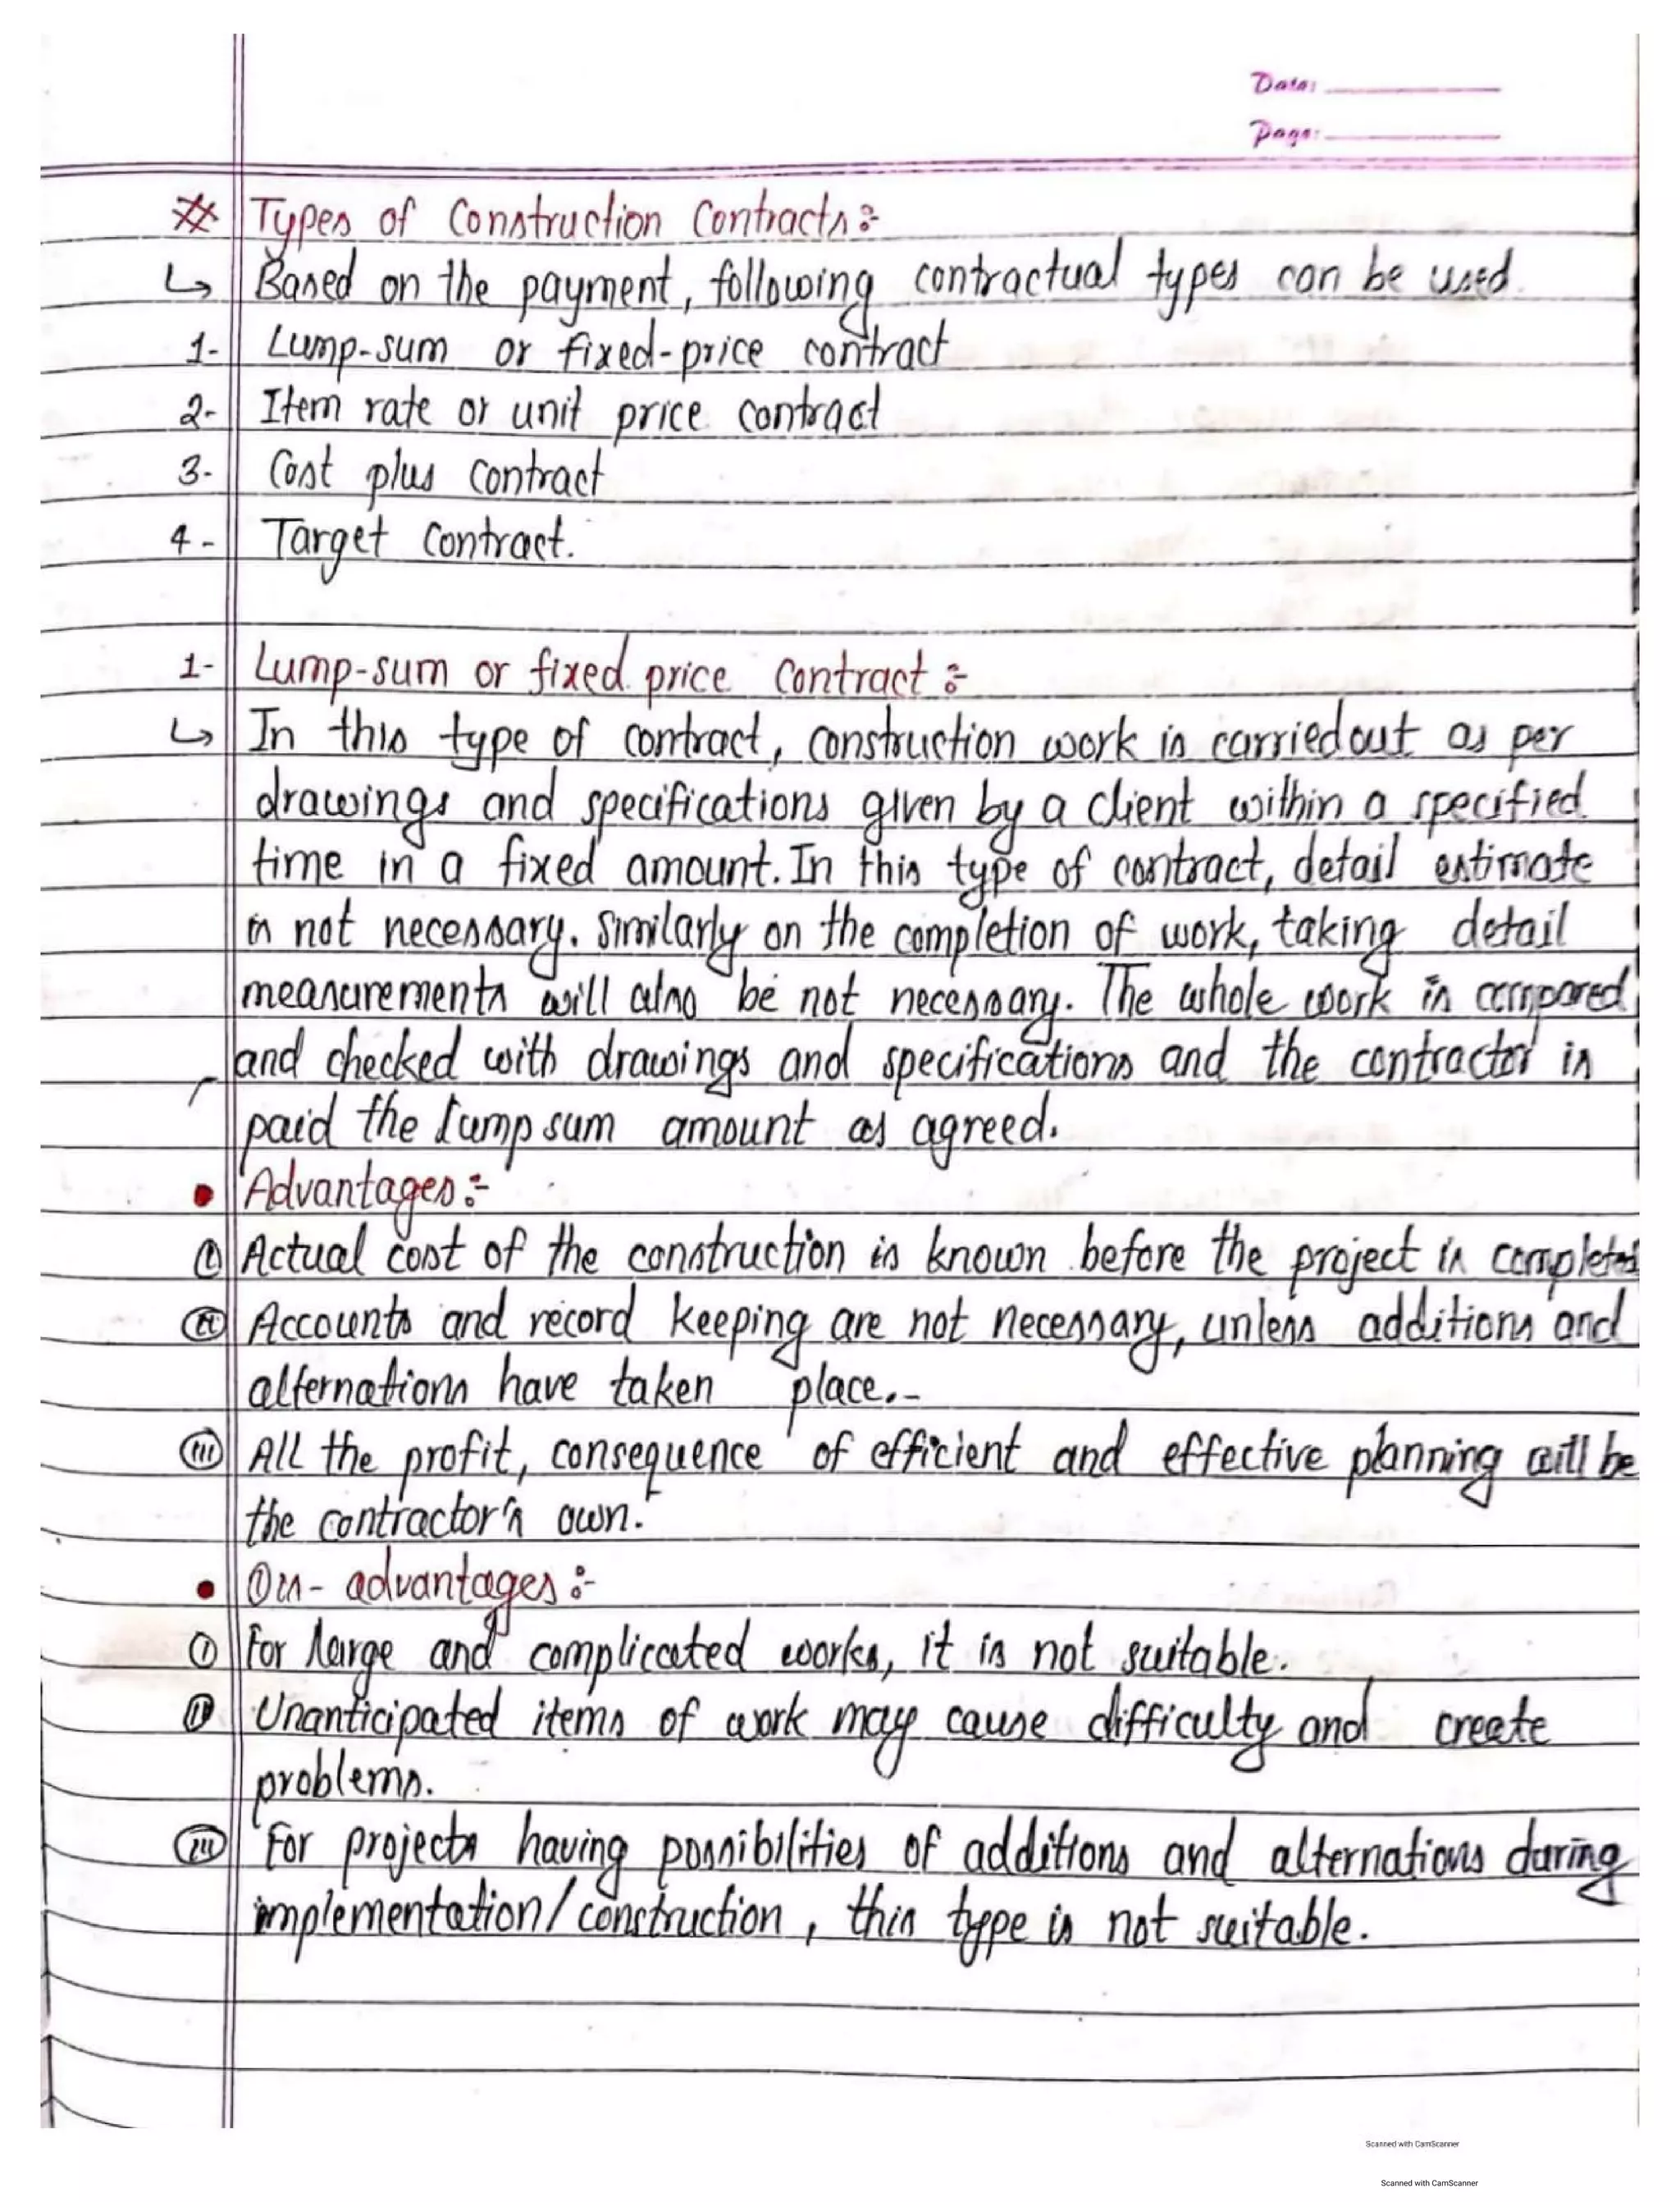 Date:
Page:
# Types of Construction Contracts:-
↳ Based on the payment, following contractual types can be used.
1- Lump-sum or fixed-price contract
2- Item rate or unit price contract
3- Cost plus contract
4- Target Contract.
1- Lump-sum or fixed price contract :-
↳ In this type of contract, construction work is carriedout as per
drawings and specifications given by a client within a specified
time in a fixed amount. In this type of contract, detail estimate
is not necessary. Similarly on the completion of work, taking detail
measurements will also be not necessary. The whole work is compared
and checked with drawings and specifications and the contractor is
paid the lump sum amount as agreed.
• Advantages:-
(i) Actual cost of the construction is known before the project is completed
(ii) Accounts and record keeping are not necessary, unless additions and
alternations have taken place.-
(iii) All the profit, consequence of efficient and effective planning will be
the contractor's own.
• Dis-advantages:-
(i) For large and complicated works, it is not suitable.
(ii) Unanticipated items of work may cause difficulty and create
problems.
(iii) For projects having possibilities of additions and alternations during
implementation/construction, this type is not suitable.
Scanned with CamScanner
Scanned with CamScanner